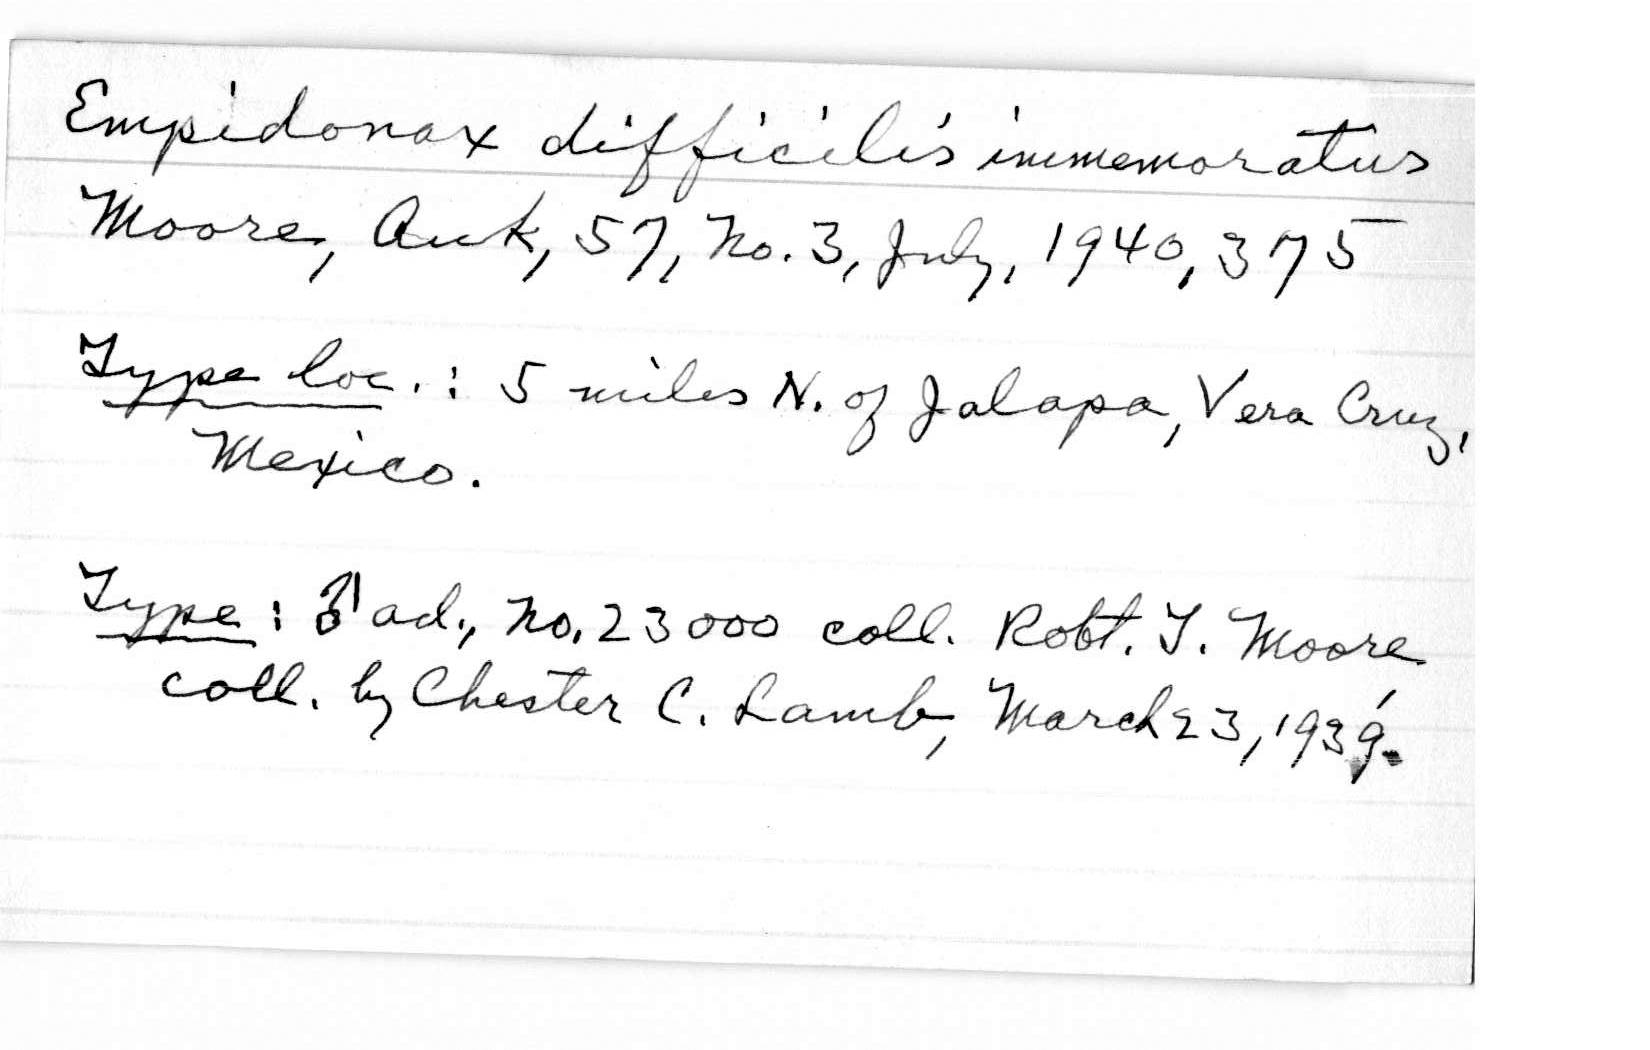 Empidonax difficilis immemoratus
Moore, Auk, 57, No. 3, July, 1940, 375
Type loc.: 5 miles N. of Jalapa, Vera Cruz,
Mexico.
Type: ♂ ad., No. 23000 coll. Robt. T. Moore
coll. by Chester C. Lamb, March 23, 1939.